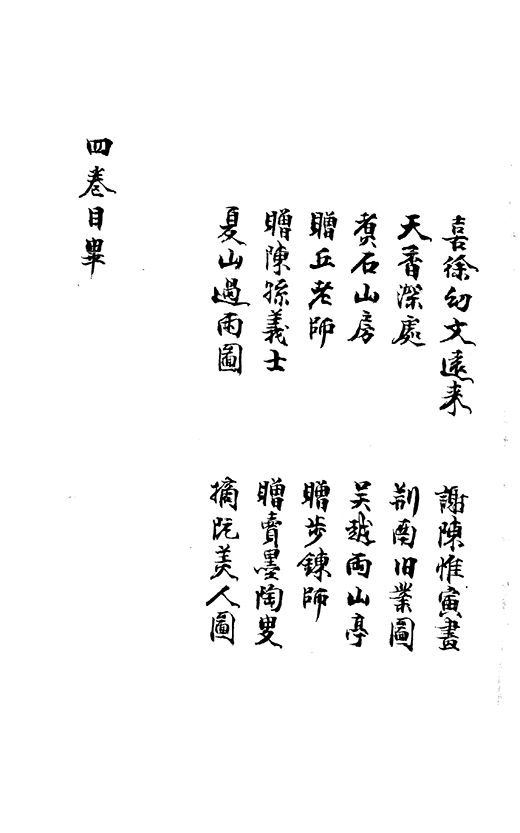 喜徐幼文遠来
謝陳惟寅畫
天香深處
荆南旧業圖
煑石山房
吴越両山亭
贈丘老師
贈步錬師
贈陳孫義士
贈賣墨陶叟
夏山過雨圖
摘阮美人圖
四卷目畢